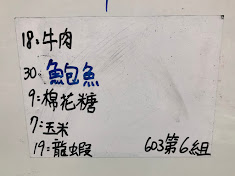 18:牛肉
30:鮑包魚
9:棉花糖
7:玉米
19:龍蝦
603第6組